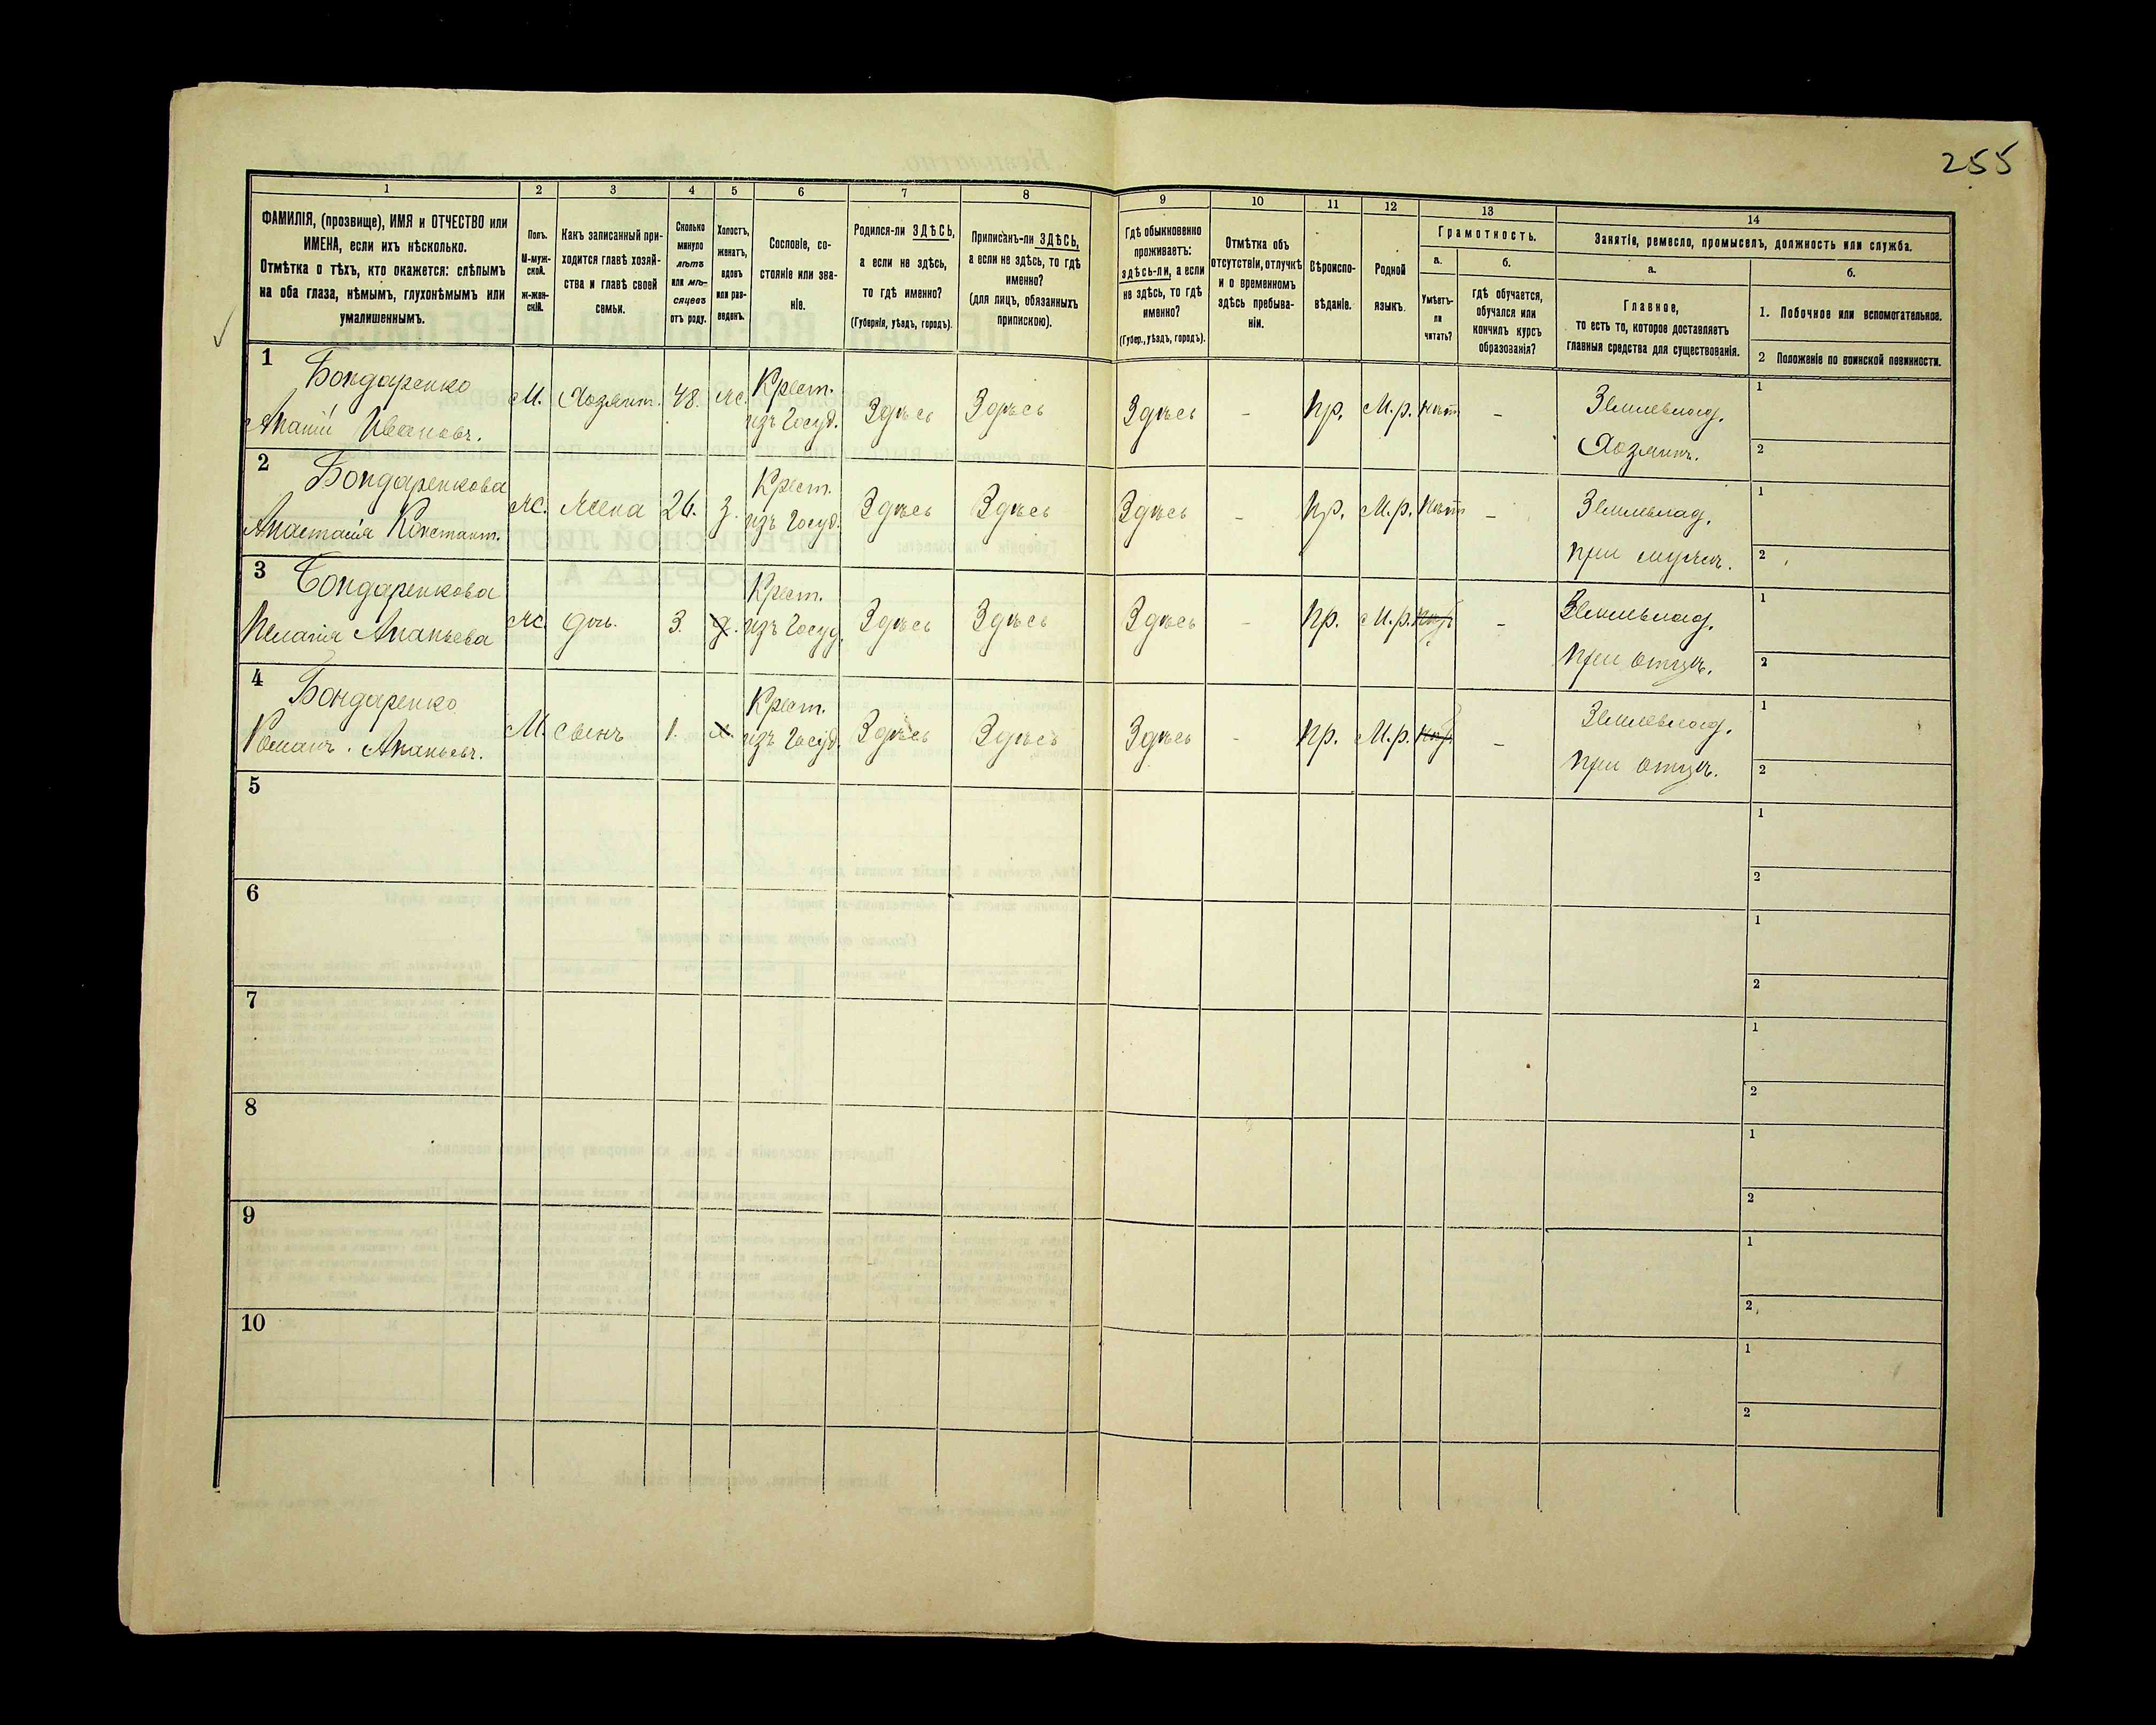 255
1 2 3 4 5 6 7 8 9 10 11 12 13 14
ФАМИЛІЯ, (прозвище), ИМЯ и ОТЧЕСТВО или
ИМЕНА, если ихъ нѣсколько.
Отмѣтка о тѣхъ, кто окажется: слѣпымъ
на оба глаза, нѣмымъ, глухонѣмымъ или
умалишеннымъ.
Полъ.
М-муж-
ской.
ж-жен-
скій.
Какъ записанный при-
ходится главѣ хозяй-
ства и главѣ своей
семьи.
Сколько
минуло
лѣтъ
или мѣ-
сяцевъ
отъ роду.
Холостъ,
женатъ,
вдовъ
или раз-
веденъ.
Сословіе, со-
стояніе или зва-
ніе.
Родился-ли ЗДѢСЬ,
а если не здѣсь,
то гдѣ именно?
(Губернія, уѣздъ, городъ).
Приписанъ-ли ЗДѢСЬ,
а если не здѣсь, то гдѣ
именно?
(для лицъ, обязанныхъ
припискою).
Гдѣ обыкновенно
проживаетъ:
здѣсь-ли, а если
не здѣсь, то гдѣ
именно?
(Губер., уѣздъ, городъ).
Отмѣтка объ
отсутствіи, отлучкѣ
и о временномъ
здѣсь пребыва-
ніи.
Вѣроиспо-
вѣданіе.
Родной
языкъ.
Грамотность.
а.
Умѣетъ-
ли
читать?
б.
гдѣ обучается,
обучался или
кончилъ курсъ
образованія?
Занятія, ремесло, промыселъ, должность или служба.
а.
Главное,
то есть то, которое доставляетъ
главныя средства для существованія.
б.
1. Побочное или вспомогательное.
2 Положеніе по воинской повинности.
1 Бондаренко
Ананій Ивановъ.
М. Хозяин. 48. Ж. Крест.
изъ Госуд. Здѣсь Здѣсь Здѣсь - пр. М.р. Нѣт - Землевлад.
Хозяинъ.
1
2
2 Бондаренкова
Анастасія Констант.
Ж. Жена 26. З. Крест.
изъ Госуд. Здѣсь Здѣсь Здѣсь - пр. М.р. Нѣт - Землевлад.
при мужѣ.
1
2
3 Бондаренкова
Пелагія Ананьева
Ж. дочь. 3. д. Крест.
изъ Госуд. Здѣсь Здѣсь Здѣсь - пр. М.р. - Землевлад.
при отцѣ.
1
2
4 Бондаренко
Романъ. Ананьевъ.
М. сынъ 1. х. Крест.
изъ Госуд. Здѣсь Здѣсь Здѣсь - пр. М.р. - Землевлад.
при отцѣ.
1
2
5
1
2
6
1
2
7
1
2
8
1
2
9
1
2
10
1
2